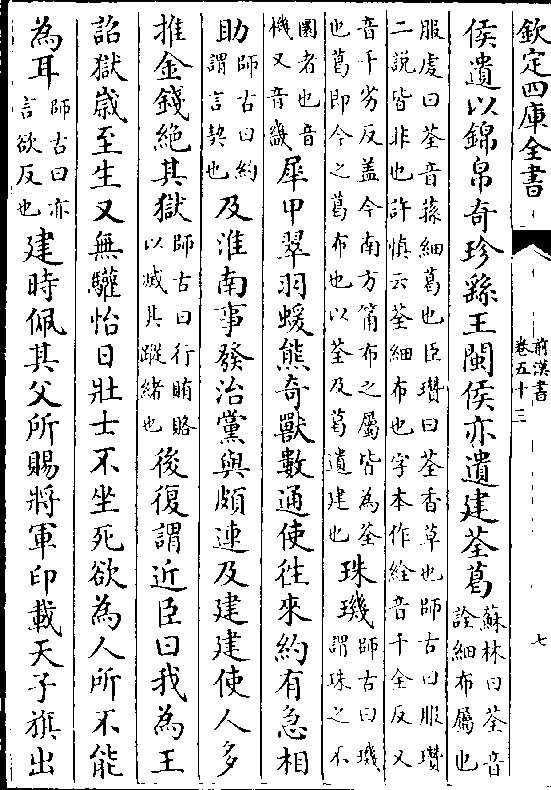 欽定四庫全書
前漢書
卷五十三
七
侯遺以錦帛奇珍繇王閩侯亦遺建荃葛蘇林曰荃音
詮細布屬也
服虔曰荃音蓀細葛也臣瓚曰荃香草也師古曰服瓚
二説皆非也許慎云荃細布也字本作絟音千全反又
音千劣反盖今南方筩布之屬皆為荃
也葛即今之葛布也以荃及葛遺建也珠璣師古曰璣
謂珠之不
圜者也音
機又音畿犀甲翠羽蝯熊奇獸數通使往來約有急相
助師古曰約
謂言契也及淮南事發治黨與頗連及建建使人多
推金錢絶其獄師古曰行賄賂
以滅其蹤緒也後復謂近臣曰我為王
詔獄歲至生又無驩怡日壯士不坐死欲為人所不能
為耳師古曰亦
言欲反也建時佩其父所賜將軍印載天子旗出